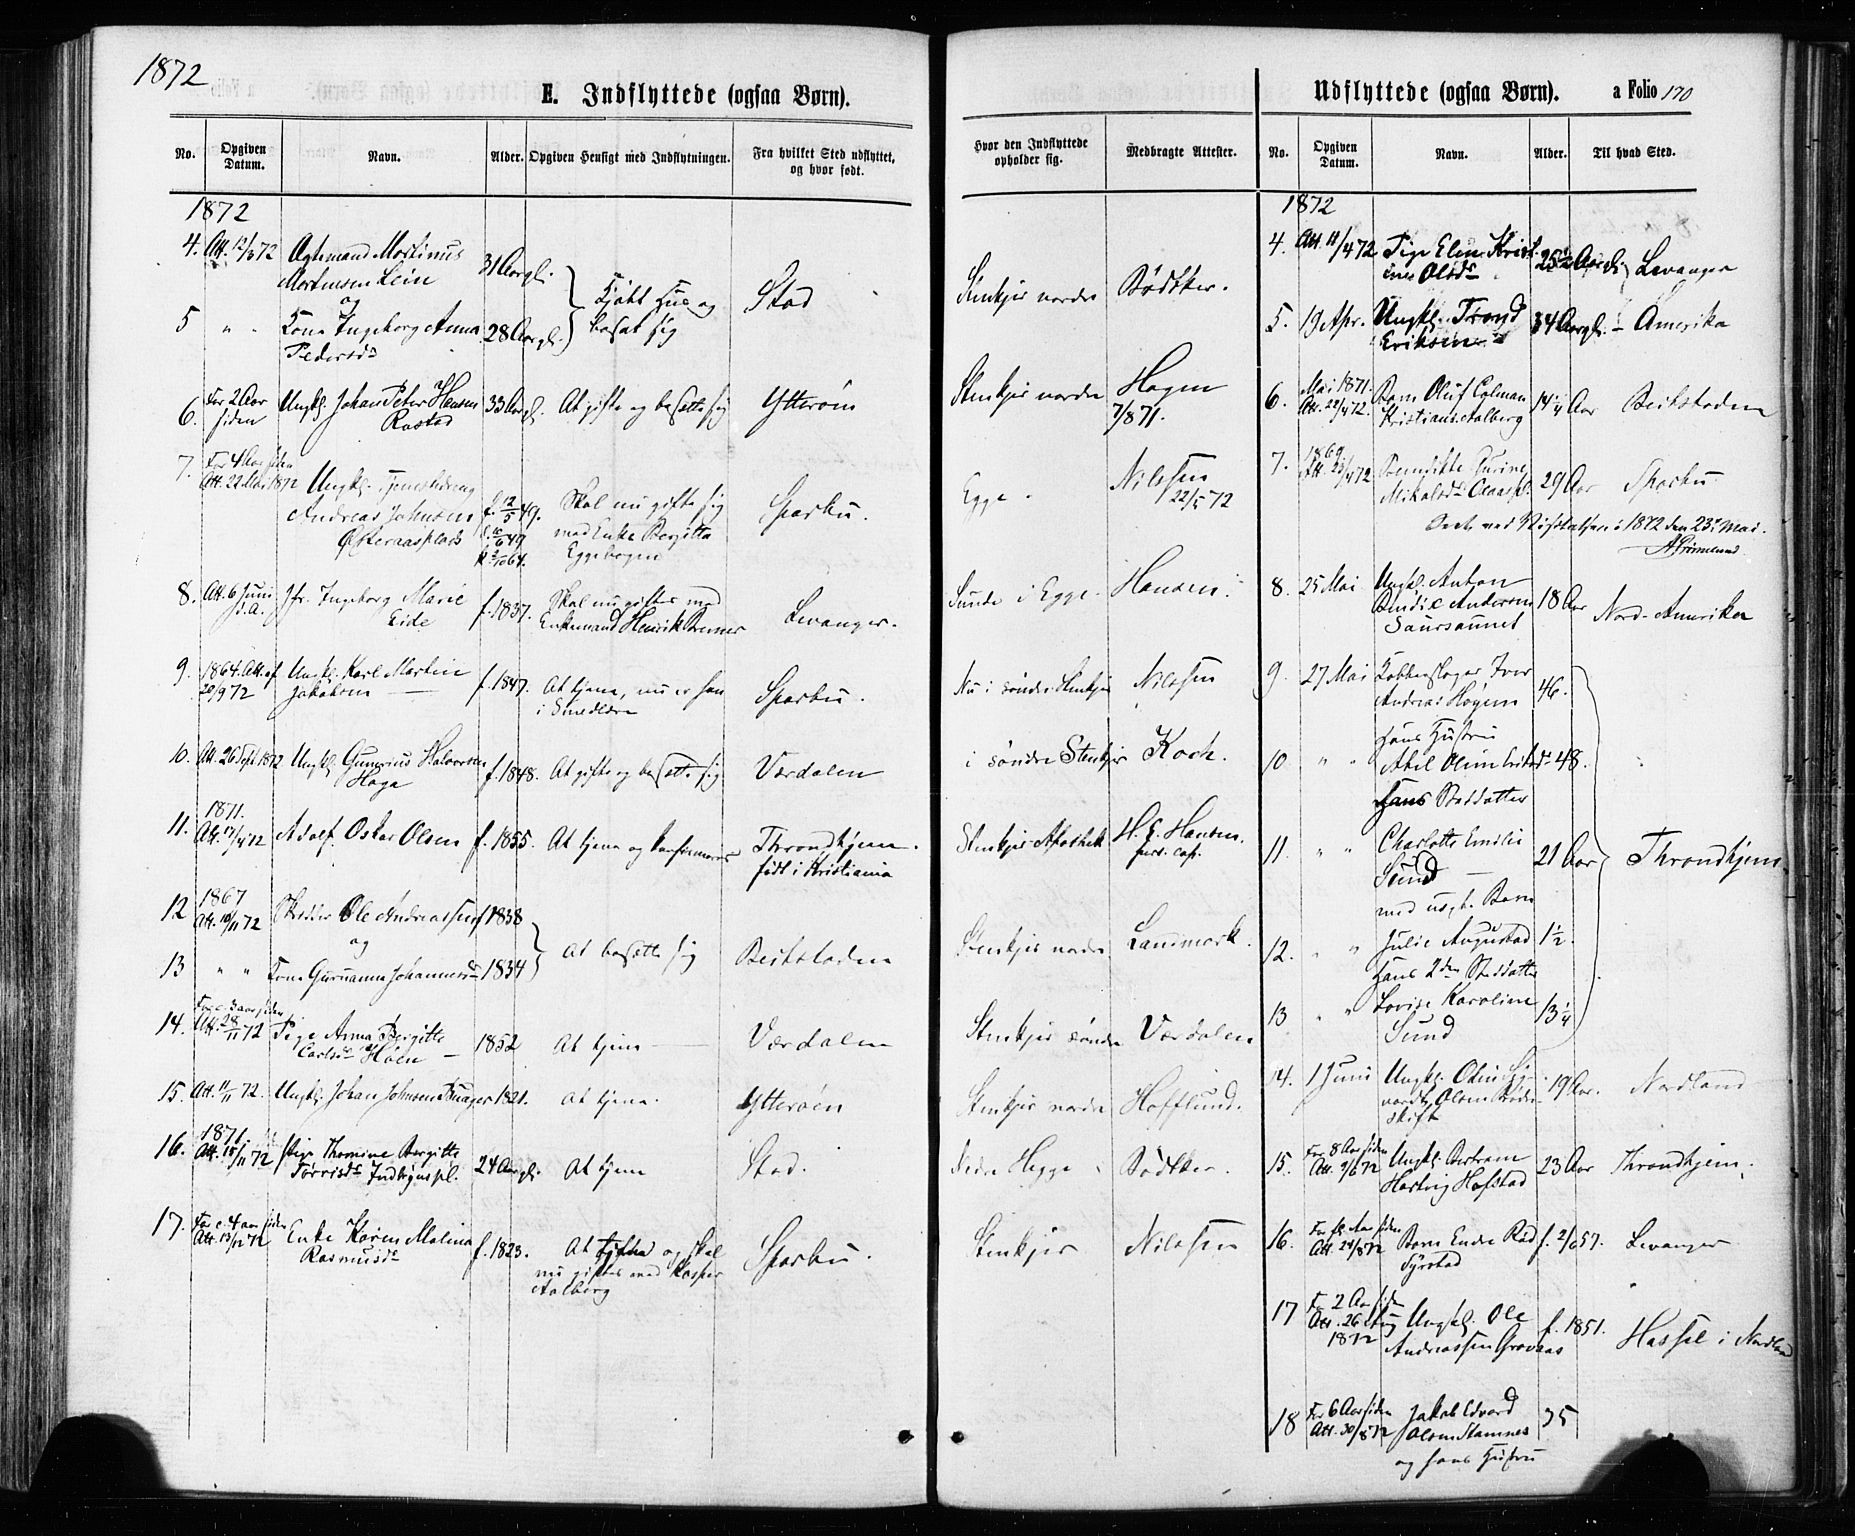 1872
E. Indflyttede (ogsaa Børn).
No. Opgiven Datum. Navn. Alder. Opgiven Hensigt med Indflytningen. Fra hvilket Sted udflyttet, og hvor født.
Hvor den Indflyttede opholder sig. Medbragte Attester.
1872
4. Att. 12/3 72 Mortinus
Mortensen Lein 31 Aar gl. Kjøbt Hus og Stod Stenkjer nordre Bødtker.
og
5 " " Kone Ingeborg Anna 28 Aar gl. bosat sig
Pedersdr
6. For 2 Aar siden Ungkl. Johan Peter Hansen Rostad 33 Aar gl. At gifte og bosætte sig Ytterøen Stenkjer nordre Hagen 7/8 71.
7. For 4 Aar siden
Att. 22 Mai 1872 Ungkl. Tjenestedreng
Andreas Johnsen f. 12/5 49. Skal nu gifte sig Sparbu. Egge. Nilssen 22/5 72
Østeraasplads med Enke Bergitta
Eggebogen
8. Att. 6 Juni d.A. Jfr. Ingeborg Marie Eide f. 1837. Skal nu giftes med Enkemand Henrik Levanger. Sunde i Egge. Hansen.
9. 1864. Att. af 20/9 72 Ungkl. Karl Martin Jakobsen f. 1847. At tjene, nu er han i Smedlære Sparbu. Nu i søndre Stenkjer Nilssen
10. Att. 26 Sept 1872 Ungkl. Halvorsen Haga f. 1848. At gifte og bosætte sig Værdalen i søndre Stenkjer Koch.
11. 1871. Att. 17/4 72 Adolf Oskar Olsen f. 1855. At tjene og konfirmeres Throndhjem. født i Kristiania Stenkjer Apothek H. E. Hansen. pers. cap.
12 1867 Att. 10/11 72 Skredder Ole Andreassen f. 1838
og At bosætte sig Beitstaden Stenkjer nordre Landmark.
13 " " Kone Johannesdr 1834
14. For c. 3 aar siden Att. 28/11 72 Pige Anna Bergitte Carlsdr Høen 1852 At tjene Værdalen Stenkjer søndre Værdalen
15. Att. 11/11 72. Ungkl. Johan Johnsen 1821. At tjene. Ytterøen Stenkjer nordre Hofflund.
16. 1871. Att. 15/11 72 Pige Thomine Bergitte 24 Aar gl. At tjene Stod. Nedre Hegge Bødtker.
17. For c. 4 aar siden Att. 13/12 72 Enke Karen Malina Rasmusdr f. 1823. At tjene og skal nu giftes med Kasper Aalberg Sparbu. Stenkjer Nilssen
Udflyttede (ogsaa Børn). a Folio 170
No. Opgiven Datum. Navn. Alder. Til hvad Sted.
1872
4. Att. 11/4 72 Pige Elen Olsdr 25 1/2 Aar gl. Levanger
5. 19 Apr. Ungkl. Trond Eriksen 34 Aar gl. Amerika
6. Mai 1871. Att. 22/4 72. Barn Oluf Kristians. Aalberg 14 1/4 Aar Beitstaden
7. 1869. Att. 23/4 72 29 Aar Sparbu
1872 den 23de Mai.
8. 25 Mai Ungkl. Anton Andersen 18 Aar Nord-Amerika
9. 27 Mai Kobberslager Iver
Andreas Høyem 46.
hans Hustru
10 " " Abel Olina 48.
hans Steddatter
11. " " Charlotte Emilie 21 Aar Throndhjem.
Sund
med uægt. Barn
12. " " Julie 1 1/2.
hans 2den Steddatter
13 " " Lovise Karoline 13 1/4
Sund
14. 1 Juni Ungkl. Olsen 19 Aar. Nordland
15. For 8 Aar siden Att. 9/6 72 Ungkl. Bertram Hartvig Hofstad 23 Aar Throndhjem.
16. For fl. Aar siden Att. 24/8 72 Barn f. 2/6 57. Levanger
17 For 2 Aar siden Att. 26 Aug 1872 Ungkl. Ole Andreassen f. 1851. Hassel i Nordland
18 For 6 Aar siden Att. 30/8 72 Jakob Edvard 35
Olsen Stamnes
og hans Hustru